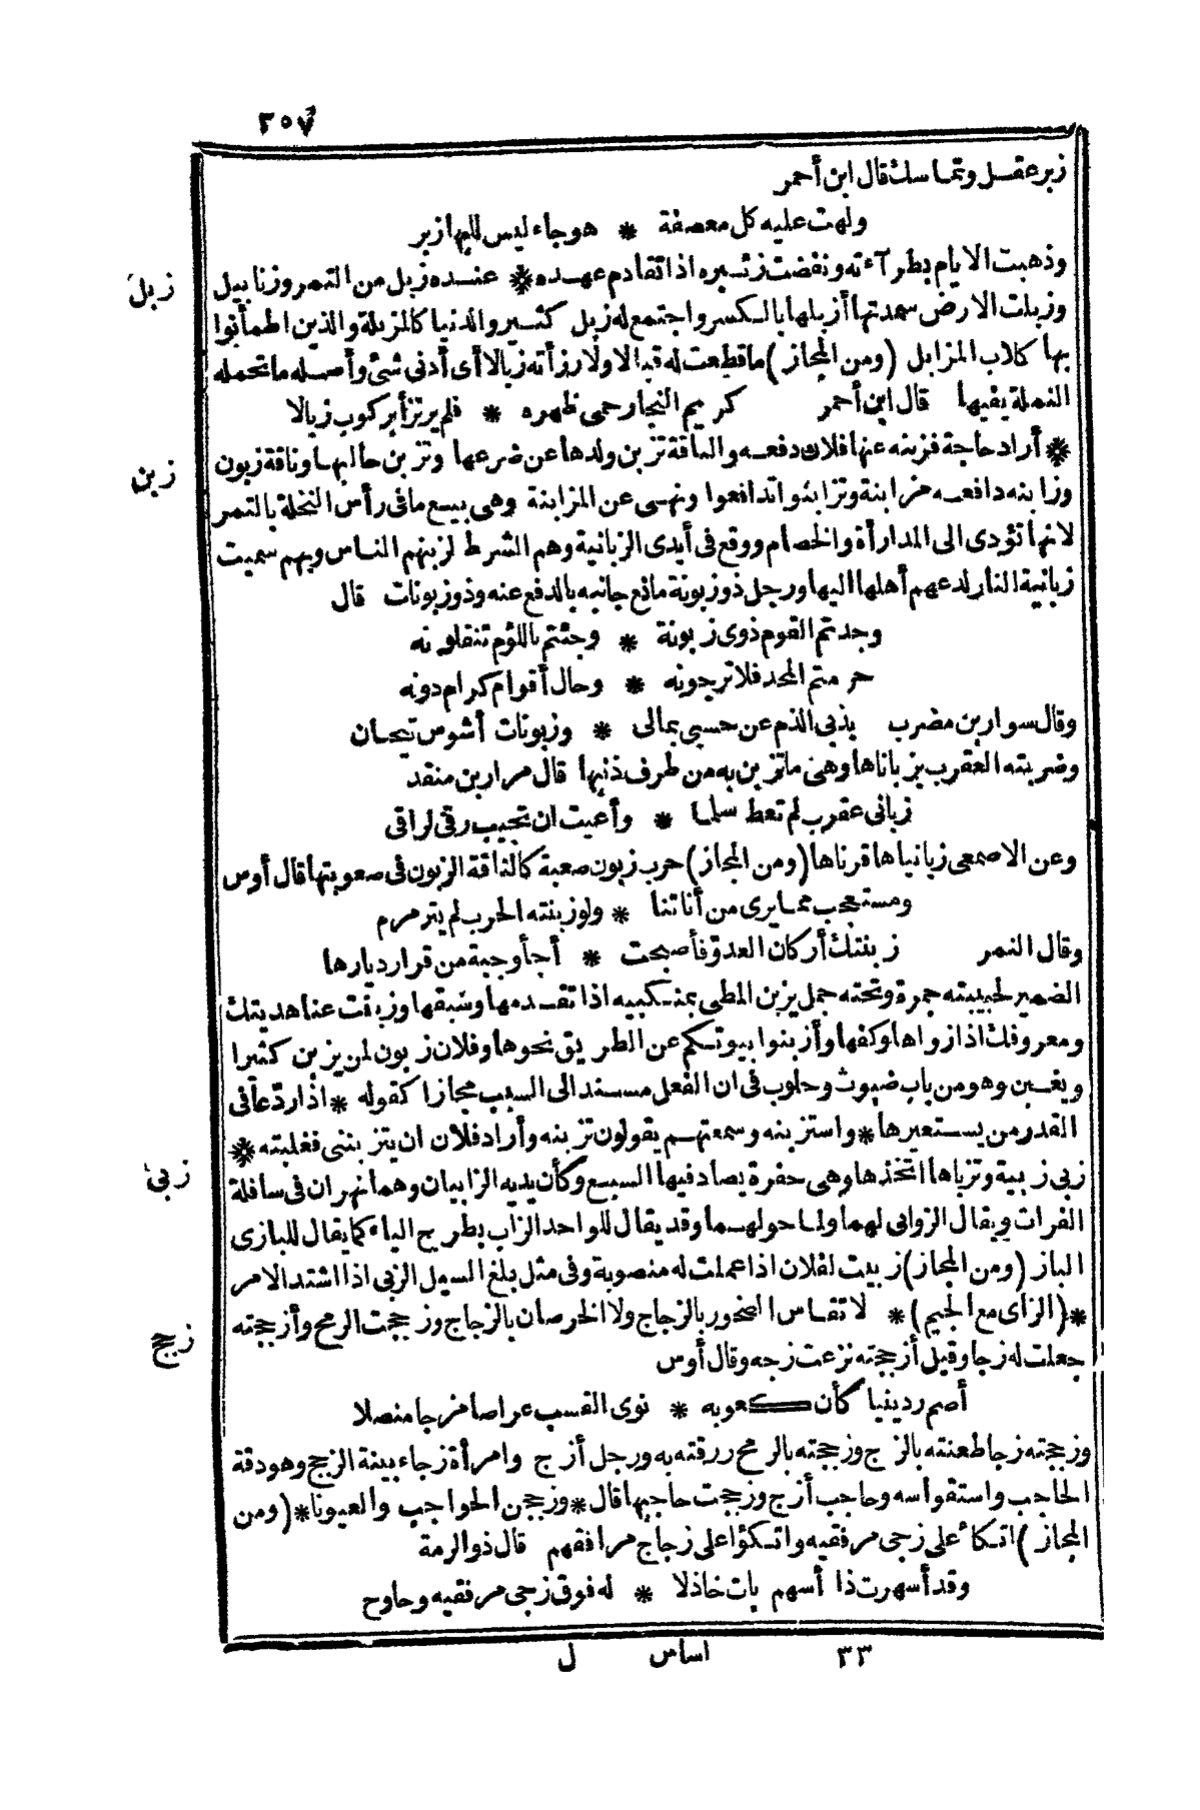 ٢٥٧
زبر عقل وتماسك قال ابن أحمر
ولهت عليه كل معصفة * هوجاء ليس للبها زبر
وذهبت الايام بطرآءته ونفضت زئبره اذا تقادم عهده * عنده زبل من التمر وزنابيل
زبل
وزبلت الارض سمدتها أزبلها بالكسر واجتمع له زبل كثير والدنيا كالمزبلة والذين اطمأنوا
بها كلاب المزابل (ومن المجاز) ما قطعت له قبالا ولا رزأته زبالا أى أدنى شئ وأصله ما تحمله
النملة بفيها قال ابن أحمر كريم النجار حمى ظهره * فلم يرتزأ بركوب زبالا
* أراد حاجة فزبنه عنها فلان دفعه والناقة تزبن ولدها عن ضرعها وتزبن حالبها وناقة زبون
زبن
وزابنه دافعه مزابنة وتزابنوا تدافعوا ونهى عن المزابنة وهى بيع ما فى رأس النخلة بالتمر
لانها تؤدى الى المدارأة والخصام ووقع فى أيدى الزبانية وهم الشرط لزبنهم الناس وبهم سميت
زبانية النار لدعهم أهلها اليها ورجل ذو زبونة مانع جانبه بالدفع عنه وذو زبونات قال
وجدتم القوم ذوى زبونة * وجئتم باللؤم تنقلونه
حرمتم المجد فلا ترجونه * وحال أقوام كرام دونه
وقال سوار بن مضرب بذبى الذم عن حسبى بمالى * وزبونات أشوس تيحان
وضربته العقرب بزباناها وهى ما تزبن به من طرف ذنبها قال مرار بن منقد
زبانى عقرب لم تعط سلما * وأعيت ان تجيب رقى لراقى
وعن الاصمعى زبانياها قرناها (ومن المجاز) حرب زبون صعبة كالناقة الزبون فى صعوبتها قال أوس
ومستعجب مما يرى من أناتنا * ولو زبنته الحرب لم يترمرم
وقال النمر زبنتك أركان العدو فأصبحت * أجأ وجبة من قرار ديارها
الضمير لحبيبته جمرة وتحته جمل يزبن المطى بمنكبيه اذا تقدمها وسبقها وزبنت عنا هديتك
ومعروفك اذا زواها وكفها وأزبنوا بيوتكم عن الطريق نحوها وفلان زبون لمن يزبن كثيرا
ويغبن وهو من باب ضبوث وحلوب فى ان الفعل مسند الى السبب مجازا كقوله * اذا رد عافى
القدر من يستعيرها * واستزبنه وسمعتهم يقولون تزبنه وأراد فلان ان يتزبننى فغلبته *
زبى زبية وتزباها اتخذها وهى حفرة يصاد فيها السبع وكأن يديه الزابيان وهما نهران فى سافلة
زبى
الفرات ويقال الزوابى لهما ولما حولهما وقد يقال للواحد الزاب بطرح الياء كما يقال للبازى
الباز (ومن المجاز) زبيت لفلان اذا عملت له منصوبة وفى مثل بلغ السيل الزبى اذا اشتد الامر
*(الزاى مع الجيم)* لا تقاس الصخور بالزجاج ولا الخرصان بالزجاج وزججت الرمح وأزججته
زجج
جعلت له زجا وقيل أزججته نزعت زجه وقال أوس
أصم ردينيا كأن كعوبه * نوى القسب عراصا مزجا منصلا
وزججته زجا طعنته بالزج وزججته بالرمح زرقته به ورجل أزج وامرأة زجاء بينة الزجج وهو دقة
الحاجب واستقواسه وحاجب أزج وزججت حاجبها قال * وزججن الحواجب والعيونا * (ومن
المجاز) اتكأ على زجى مرفقيه واتكؤا على زجاج مرافقهم قال ذو الرمة
وقد أسهرت ذا أسهم بات خاذلا * له فوق زجى مرفقيه وحاوح
٣٣ اساس ل